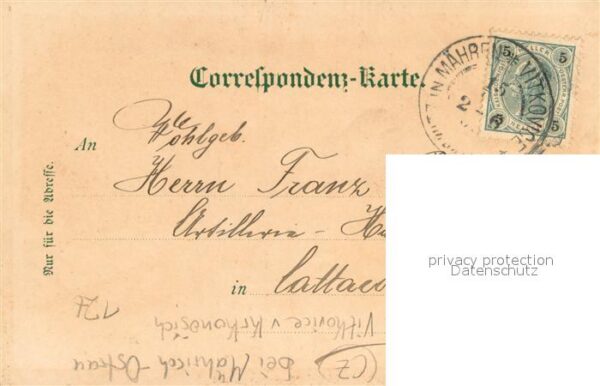 Correspondenz-Karte.
IN MÄHREN VITKOVICE
5 5
5 5
An
Wohlgeb.
Herrn Franz
Artillerie-
in Cattaro
Nur für die Adresse.
privacy protection
Datenschutz
Vitkovice v Krkonoších
(CZ) bei Mährisch-Ostrau